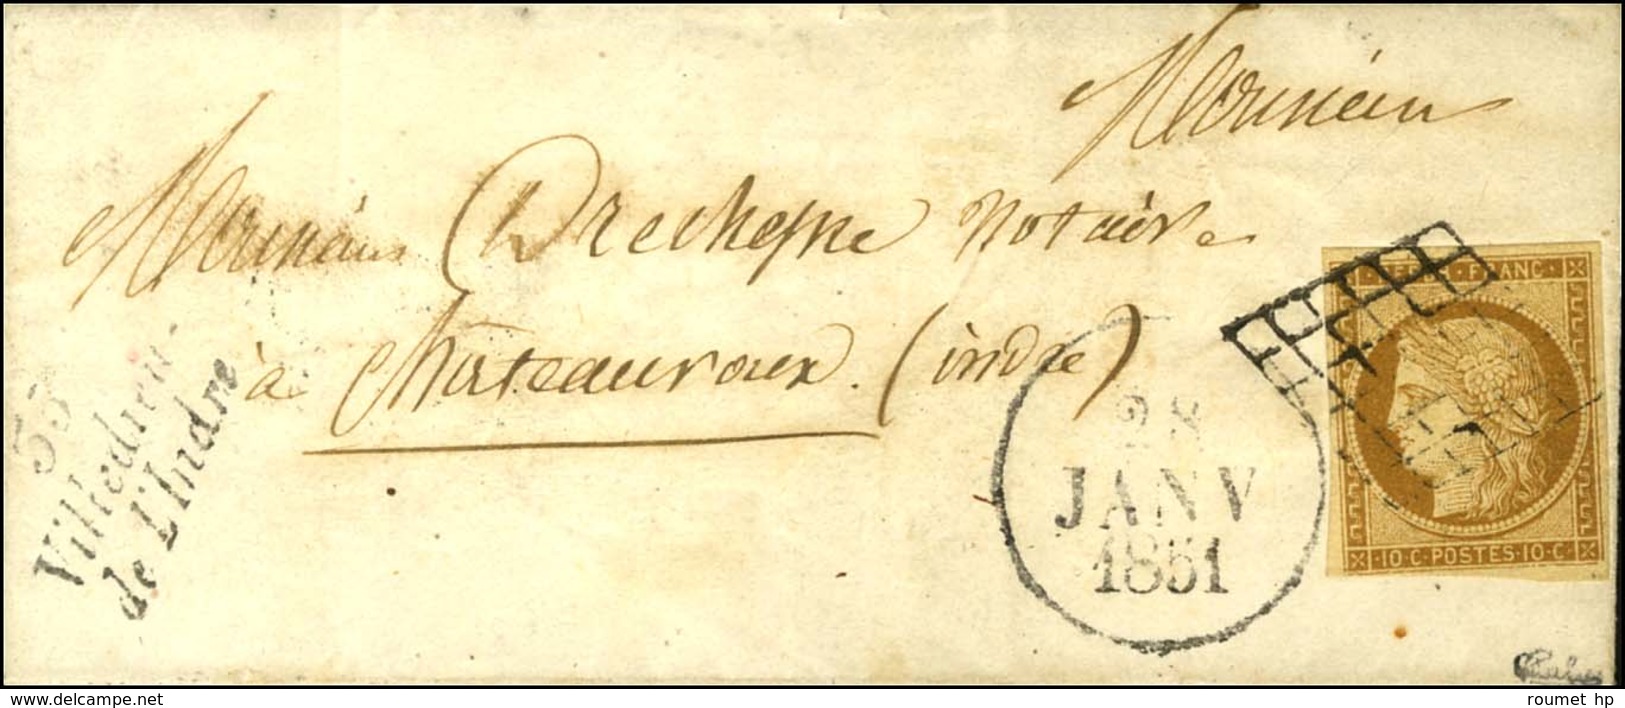 Monsieur
Monsieur Drechesne Notaire
à Châteauroux (indre)
35
Villedieu-
de L'Indre
28
JANV
1851
REPUB · FRANC ·
· 10 · C · POSTES · 10 · C ·
www.delcampe.net
roumet hp